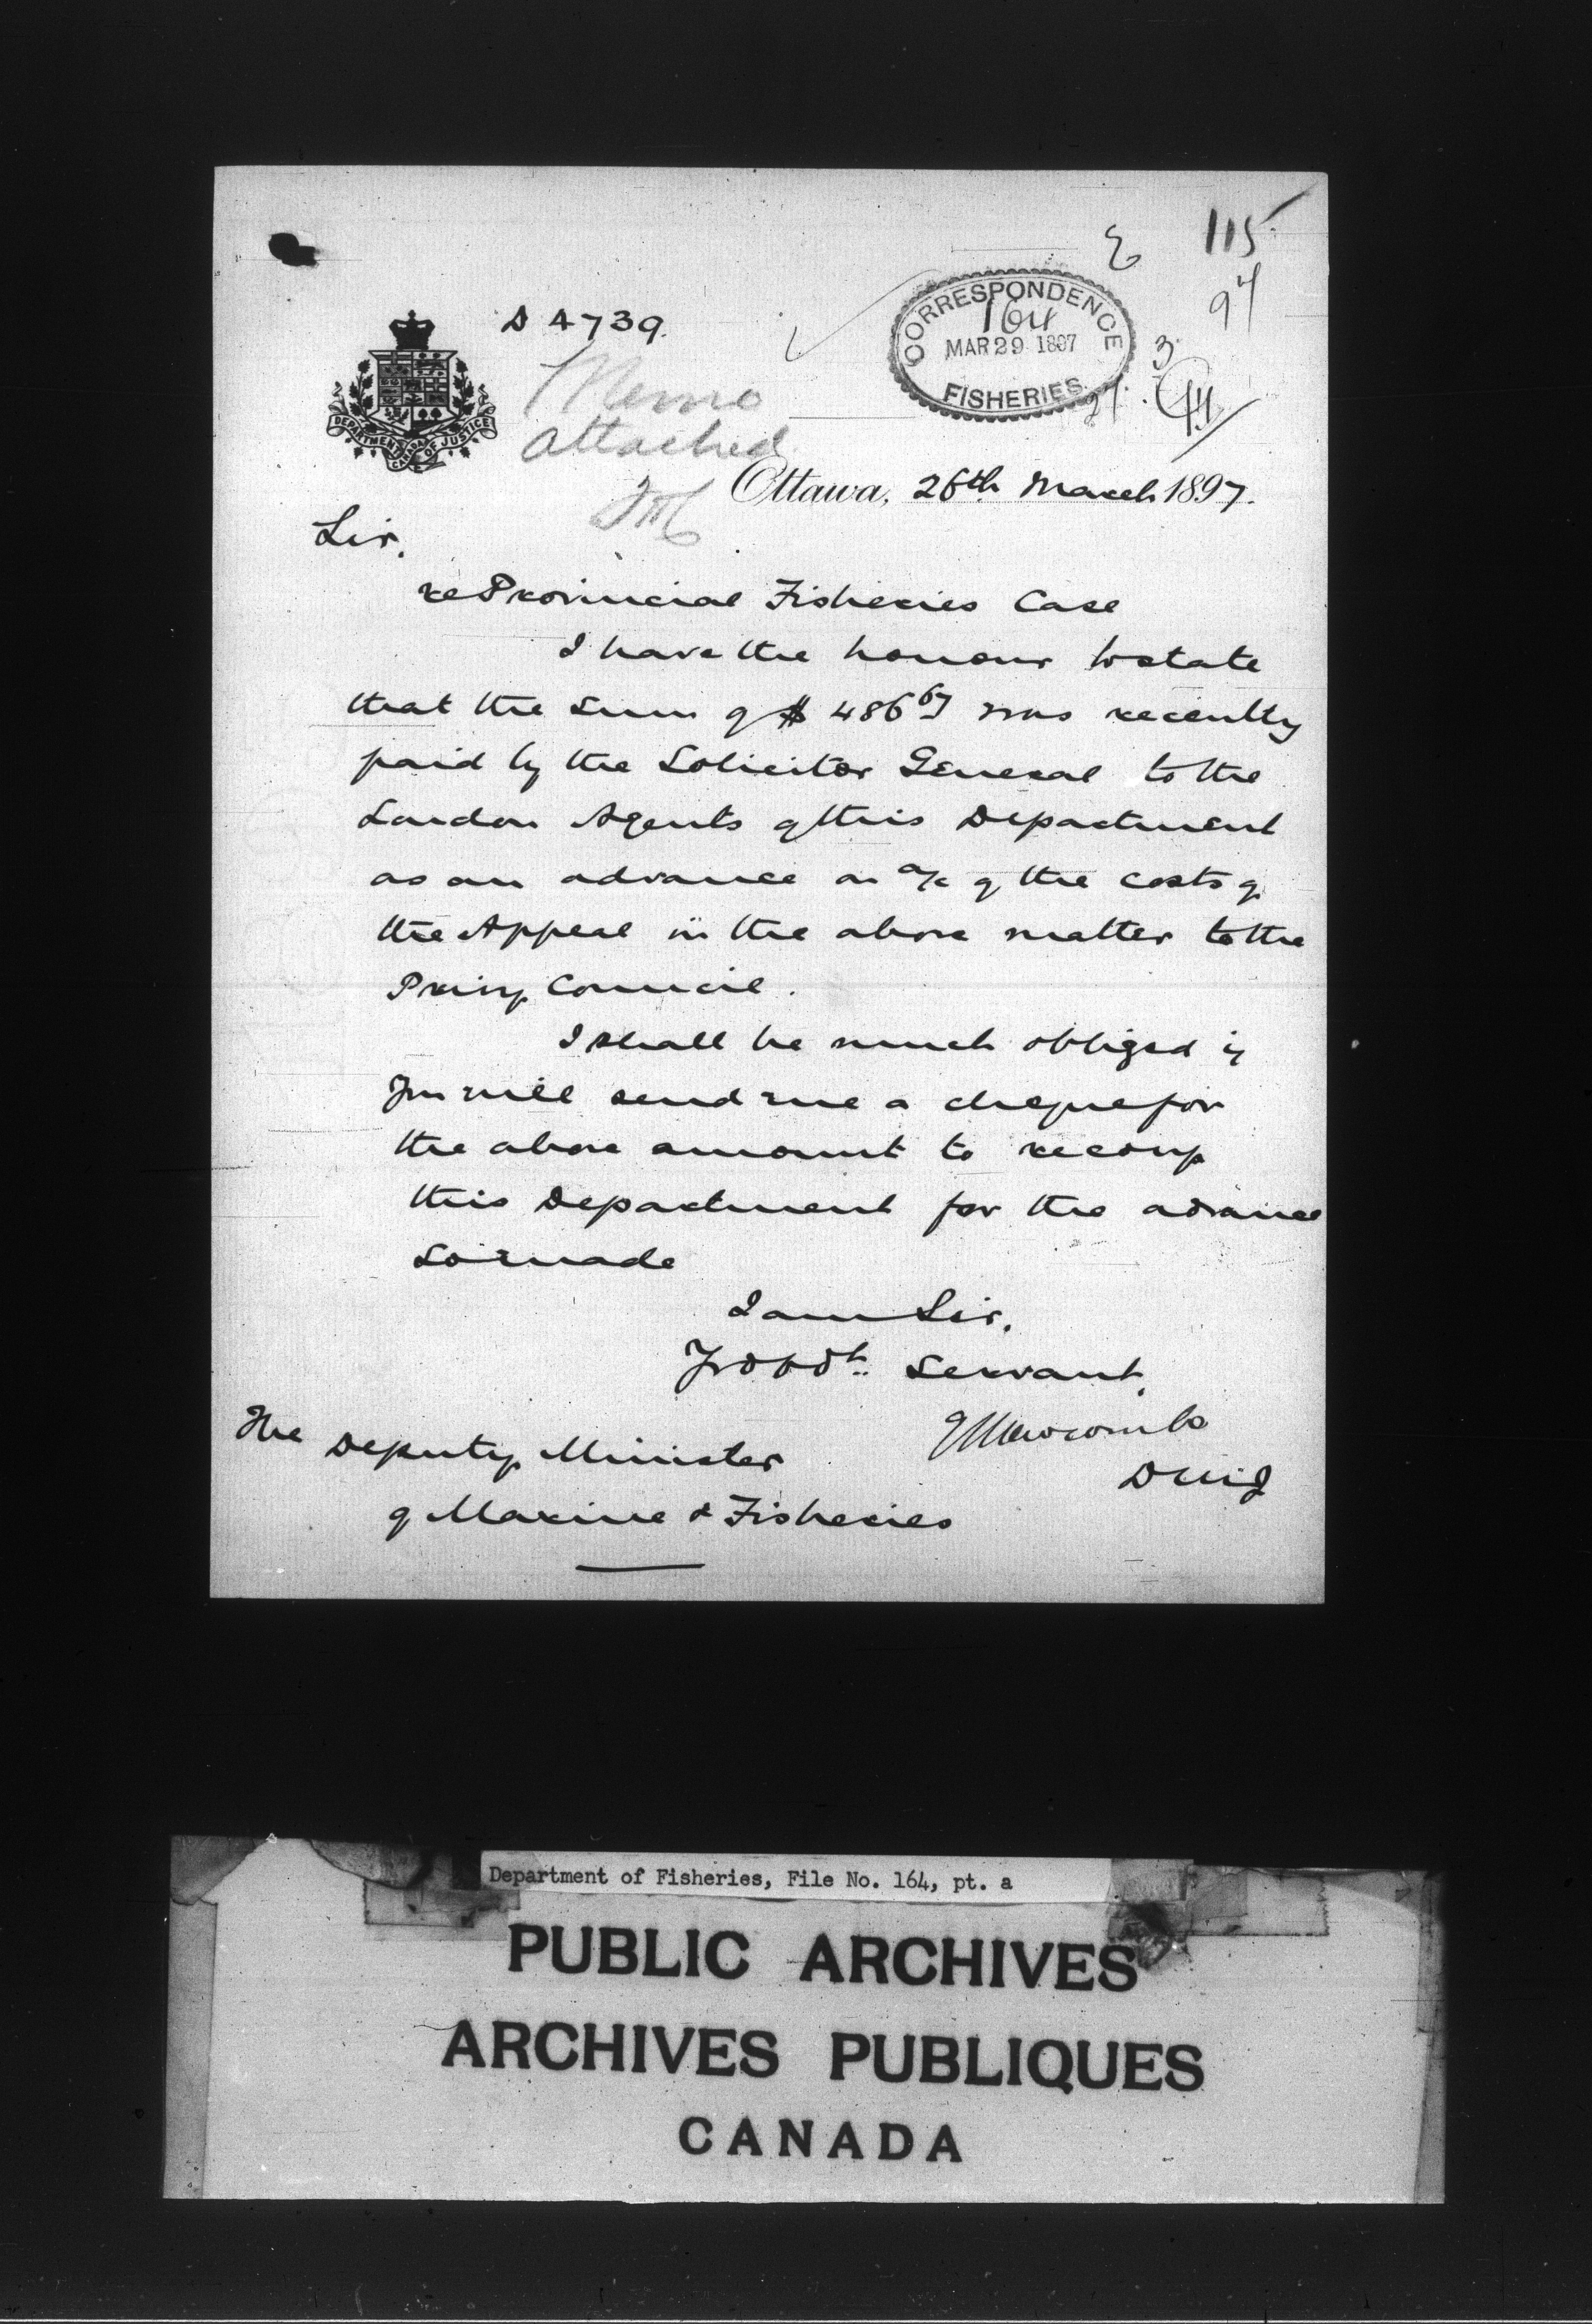 115
E
97
D 4739.
CORRESPONDENCE
164
MAR 29 1897
FISHERIES.
3.
Memo
attached
DEPARTMENT OF JUSTICE
CANADA
Ottawa, 26th March 1897.
Sir,
re Provincial Fisheries Case
I have the honour to state
that the sum of $ 486 67 was recently
paid by the Solicitor General to the
London Agents of this Department
as an advance on a/c of the costs of
the Appeal in the above matter to the
Privy Council.
I shall be much obliged if
you will send me a cheque for
the above amount to recoup
this Department for the advance
so made
I am Sir,
Yr obdt. Servant,
E L Newcombe
DMJ
The Deputy Minister
of Marine & Fisheries
Department of Fisheries, File No. 164, pt. a
PUBLIC ARCHIVES
ARCHIVES PUBLIQUES
CANADA